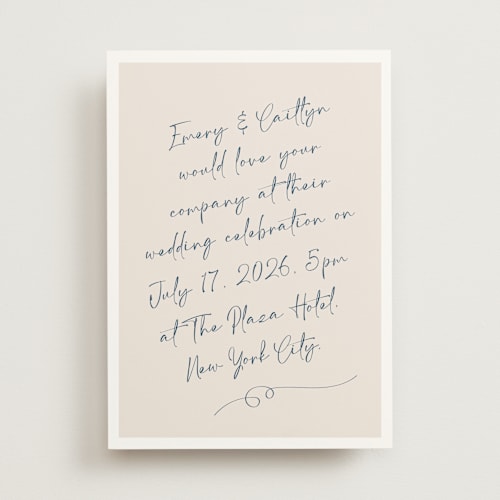 Emery & Caitlyn
would love your
company at their
wedding celebration on
July 17, 2026, 5pm
at The Plaza Hotel,
New York City.